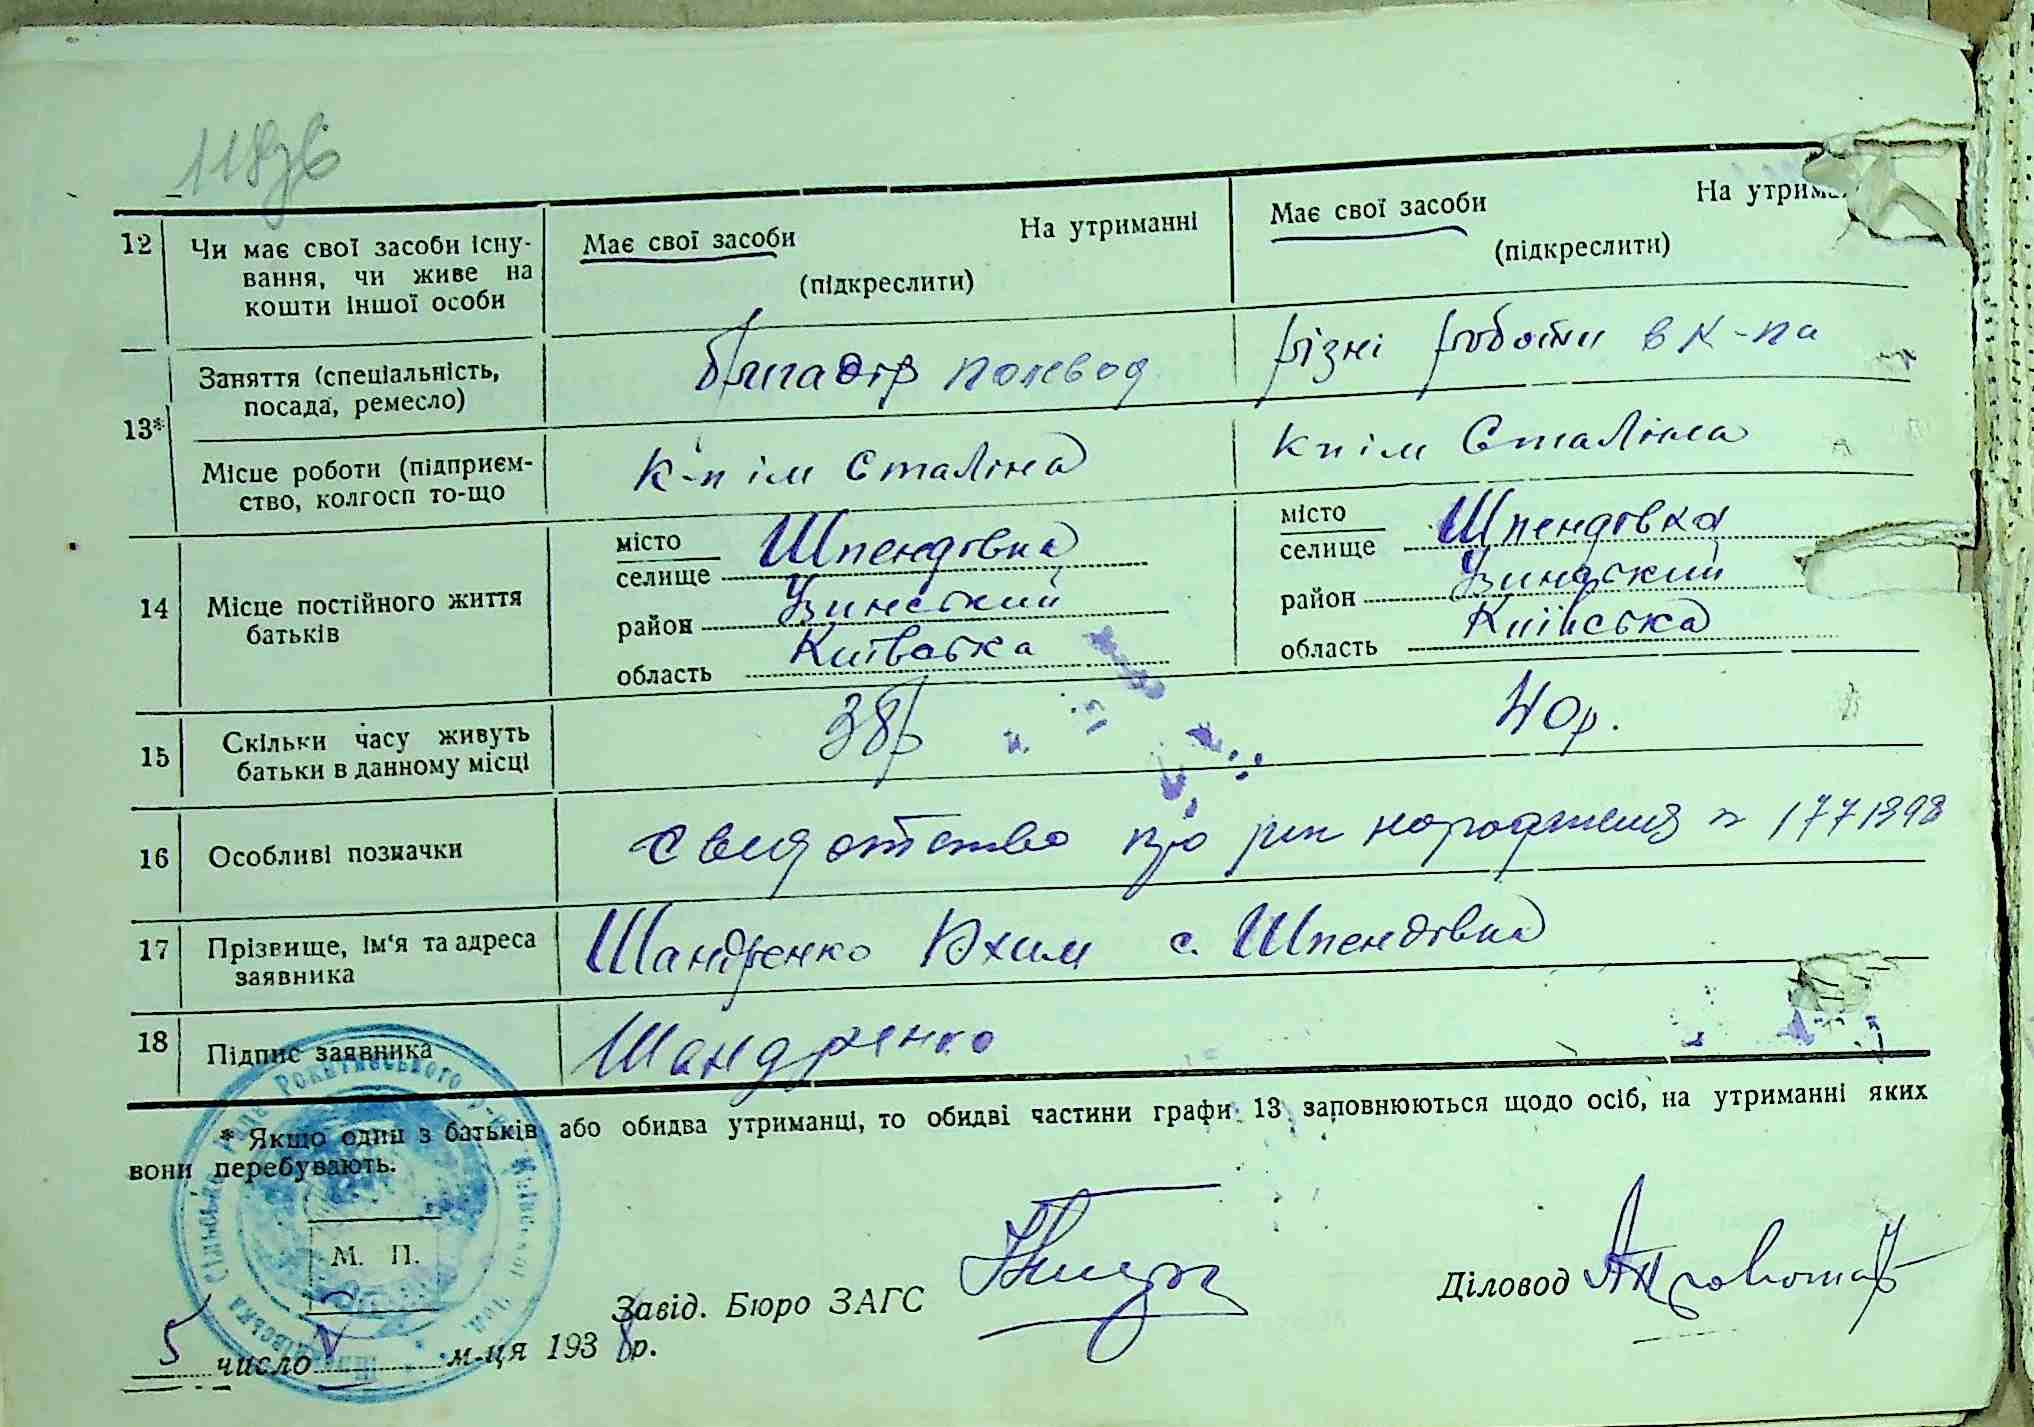 118зв
12 Чи має свої засоби існу- Має свої засоби На утриманні Має свої засоби На утрим
вання, чи живе на (підкреслити) (підкреслити)
кошти іншої особи
13* Заняття (спеціальність, бригадір полевод різні роботи в к-па
посада, ремесло)
Місце роботи (підприєм- к-п ім Сталіна к п ім Сталіна
ство, колгосп то-що
14 Місце постійного життя батьків
місто селище Шпендівка місто селище Шпендівка
район Узинський район Узинський
область Київська область Київська
15 Скільки часу живуть 38р 40р.
батьки в данному місці
16 Особливі позначки свидотство про рік народження № 1771898
17 Прізвище, ім'я та адреса Шандренко Юхим с. Шпендівка
заявника
18 Підпис заявника Шандренко
* Якщо один з батьків або обидва утриманці, то обидві частини графи 13 заповнюються щодо осіб, на утриманні яких
вони перебувають.
М. П.
Завід. Бюро ЗАГС Діловод
5 число V м-ця 1938р.